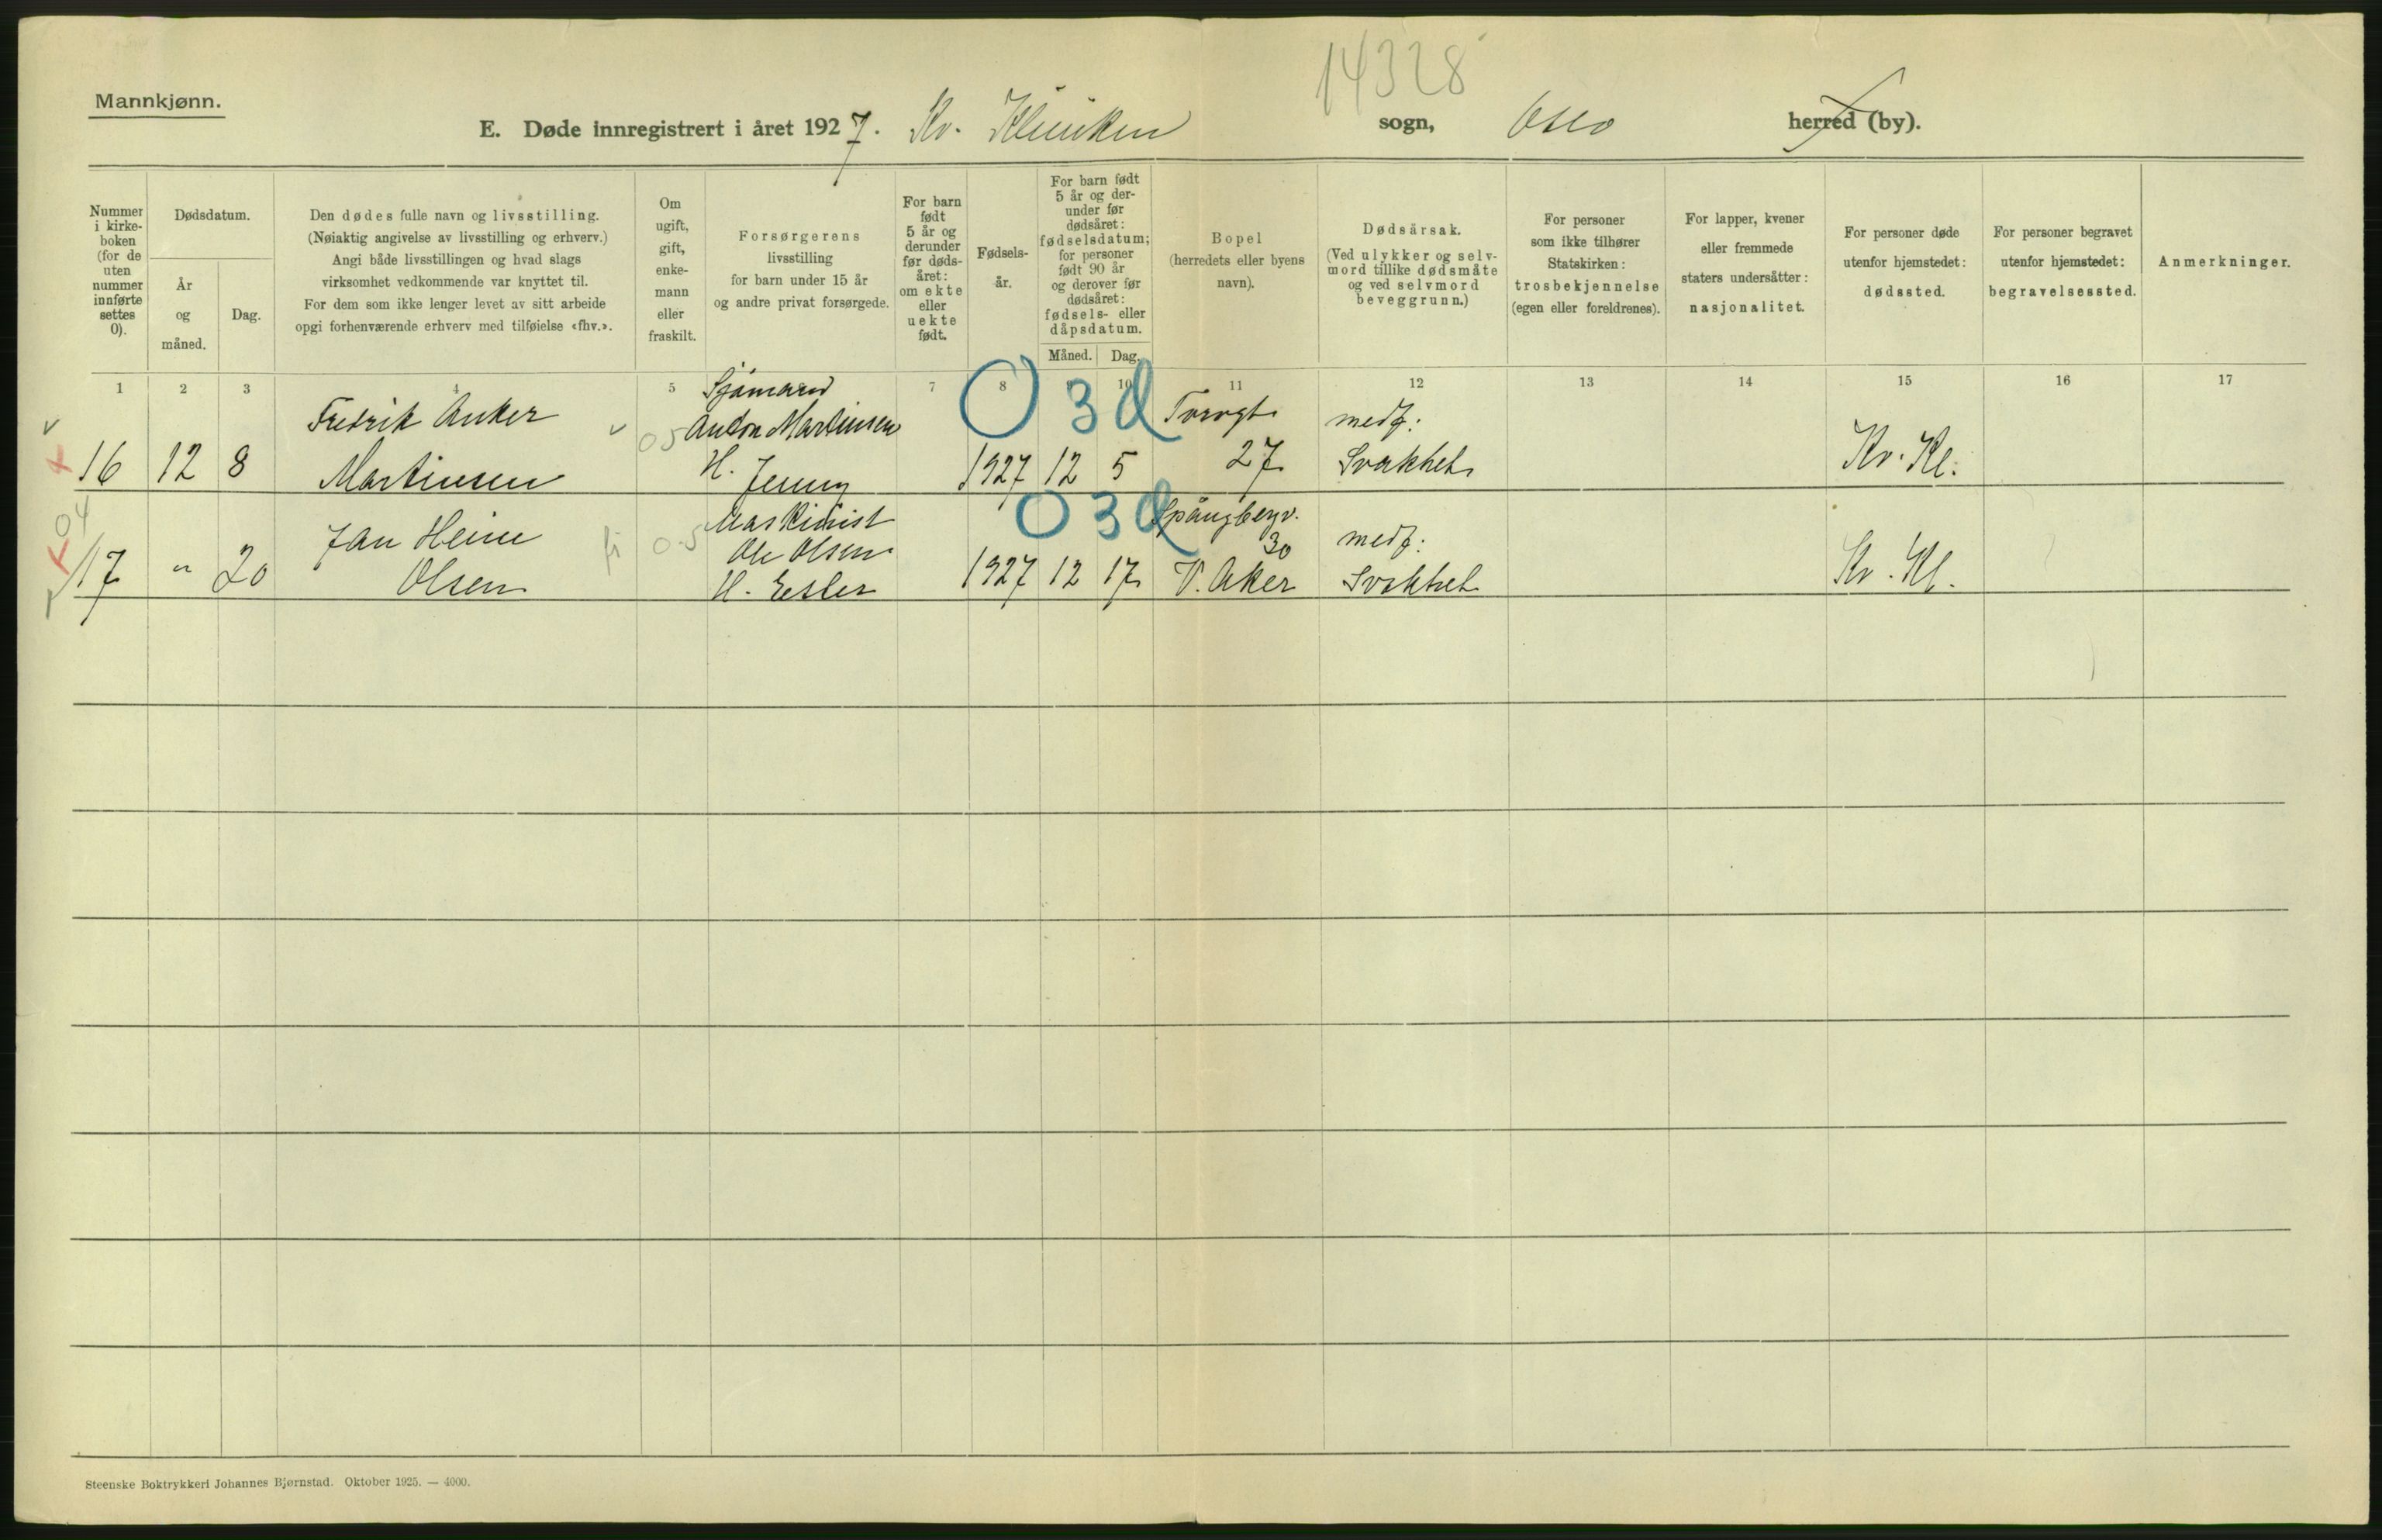 14328
Mannkjønn.
E. Døde innregistrert i året 1927. Kv. Kliniken sogn, Oslo herred (by).
Nummer
i kirke-
boken
(for de
uten
nummer
innførte
settes
0).
Dødsdatum.
År
og
måned.
Dag.
Den dødes fulle navn og livsstilling.
(Nøiaktig angivelse av livsstilling og erhverv.)
Angi både livsstillingen og hvad slags
virksomhet vedkommende var knyttet til.
For dem som ikke lenger levet av sitt arbeide
opgi forhenværende erhverv med tilføielse «fhv.».
Om
ugift,
gift,
enke-
mann
eller
fraskilt.
Forsørgerens
livsstilling
for barn under 15 år
og andre privat forsørgede.
For barn
født
5 år og
derunder
før døds-
året:
om ekte
eller
uekte
født.
Fødsels-
år.
For barn født
5 år og der-
under før
dødsåret:
fødselsdatum;
for personer
født 90 år
og derover før
dødsåret:
fødsels- eller
dåpsdatum.
Måned. Dag.
Bopel
(herredets eller byens
navn).
Dødsårsak.
(Ved ulykker og selv-
mord tillike dødsmåte
og ved selvmord
beveggrunn.)
For personer
som ikke tilhører
Statskirken:
trosbekjennelse
(egen eller foreldrenes).
For lapper, kvener
eller fremmede
staters undersåtter:
nasjonalitet.
For personer døde
utenfor hjemstedet:
dødssted.
For personer begravet
utenfor hjemstedet:
begravelsessted.
Anmerkninger.
1 2 3 4 5 7 8 10 11 12 13 14 15 16 17
16 12 8
Fredrik Anker
Martinsen
05
Sjömand
Anton Martinsen
H. Jenny
0 3 d
1927 12 5
Torvgt.
27
medf:
Svakhet
Kv. Kl.
04
17 " 20
Jan Heine
Olsen
0-5
Maskinist
Ole Olsen
H. Ester
0 3 d
1927 12 17
Spångbergv.
30
V. Aker
medf:
Svakhet
Kv. Kl.
Steenske Boktrykkeri Johannes Bjørnstad. Oktober 1925. — 4000.